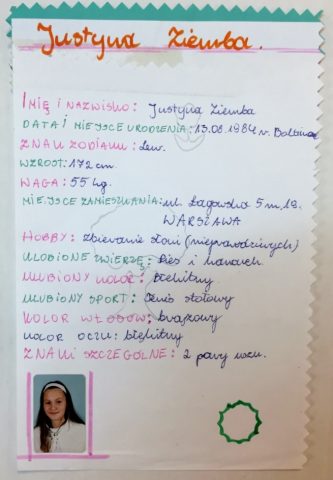 Justyna Ziemba.
IMIĘ I NAZWISKO: Justyna Ziemba
DATA I MIEJSCE URODZENIA: 13.08.1984 r.
ZNAK ZODIAKU: Lew.
WZROST: 172 cm
WAGA: 55 kg.
MIEJSCE ZAMIESZKANIA: ul. Łagowska 5 m. 19.
WARSZAWA
HOBBY: zbieranie słoni (nieprawdziwych)
ULUBIONE ZWIERZĘ: Pies i kanarek.
ULUBIONY KOLOR: błękitny
ULUBIONY SPORT: tenis stołowy
KOLOR WŁOSÓW: brązowy
KOLOR OCZU: błękitny
ZNAKI SZCZEGÓLNE: 2 pary oczu.